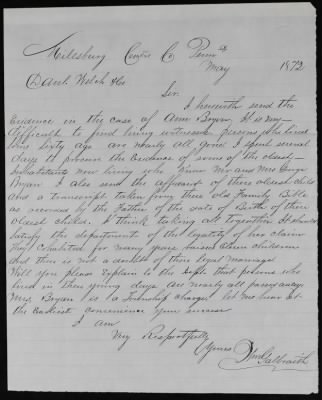 Milesburg Centre Co Penna
May 1872
Danl. Welch & Co
Sir
I herewith send the
Evidence in the case of Ann Bryan, It is very
difficult to find living witnesses persons who lived
sixty ago are nearly all gone I spent several
days to procure the Evidence of some of the oldest
inhabitants now living who knew Mr and Mrs
Bryan I also send the affidavit of their oldest child
and a transcript taken from their old Family Bible
as recorded by the Father of the date of Birth of their
oldest child. I think taking all together it should
satisfy the department of the legality of her claim
They Cohabited for many years raised Eleven children
and there is not a doubt of their legal marriage
Will you please Explain to the Dept. that persons who
lived in their young days are nearly all passed away
Mrs. Bryan is a Township charge let me hear at
the Earliest convenience your success
I am
Very Respectfully
Yours Galbraith